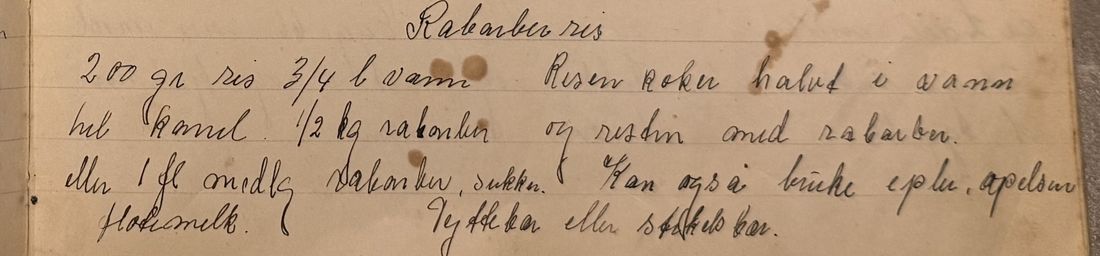 Rabarber ris
200 gr ris 3/4 l vann Risen koker halvt i vann
hel kanel. 1/2 kg rabarber og resten med rabarber.
eller 1 fl nedlg rabarber, sukker. Kan også bruke epler, apelsin
fløtemelk. Tyttebær eller stikelsbær.